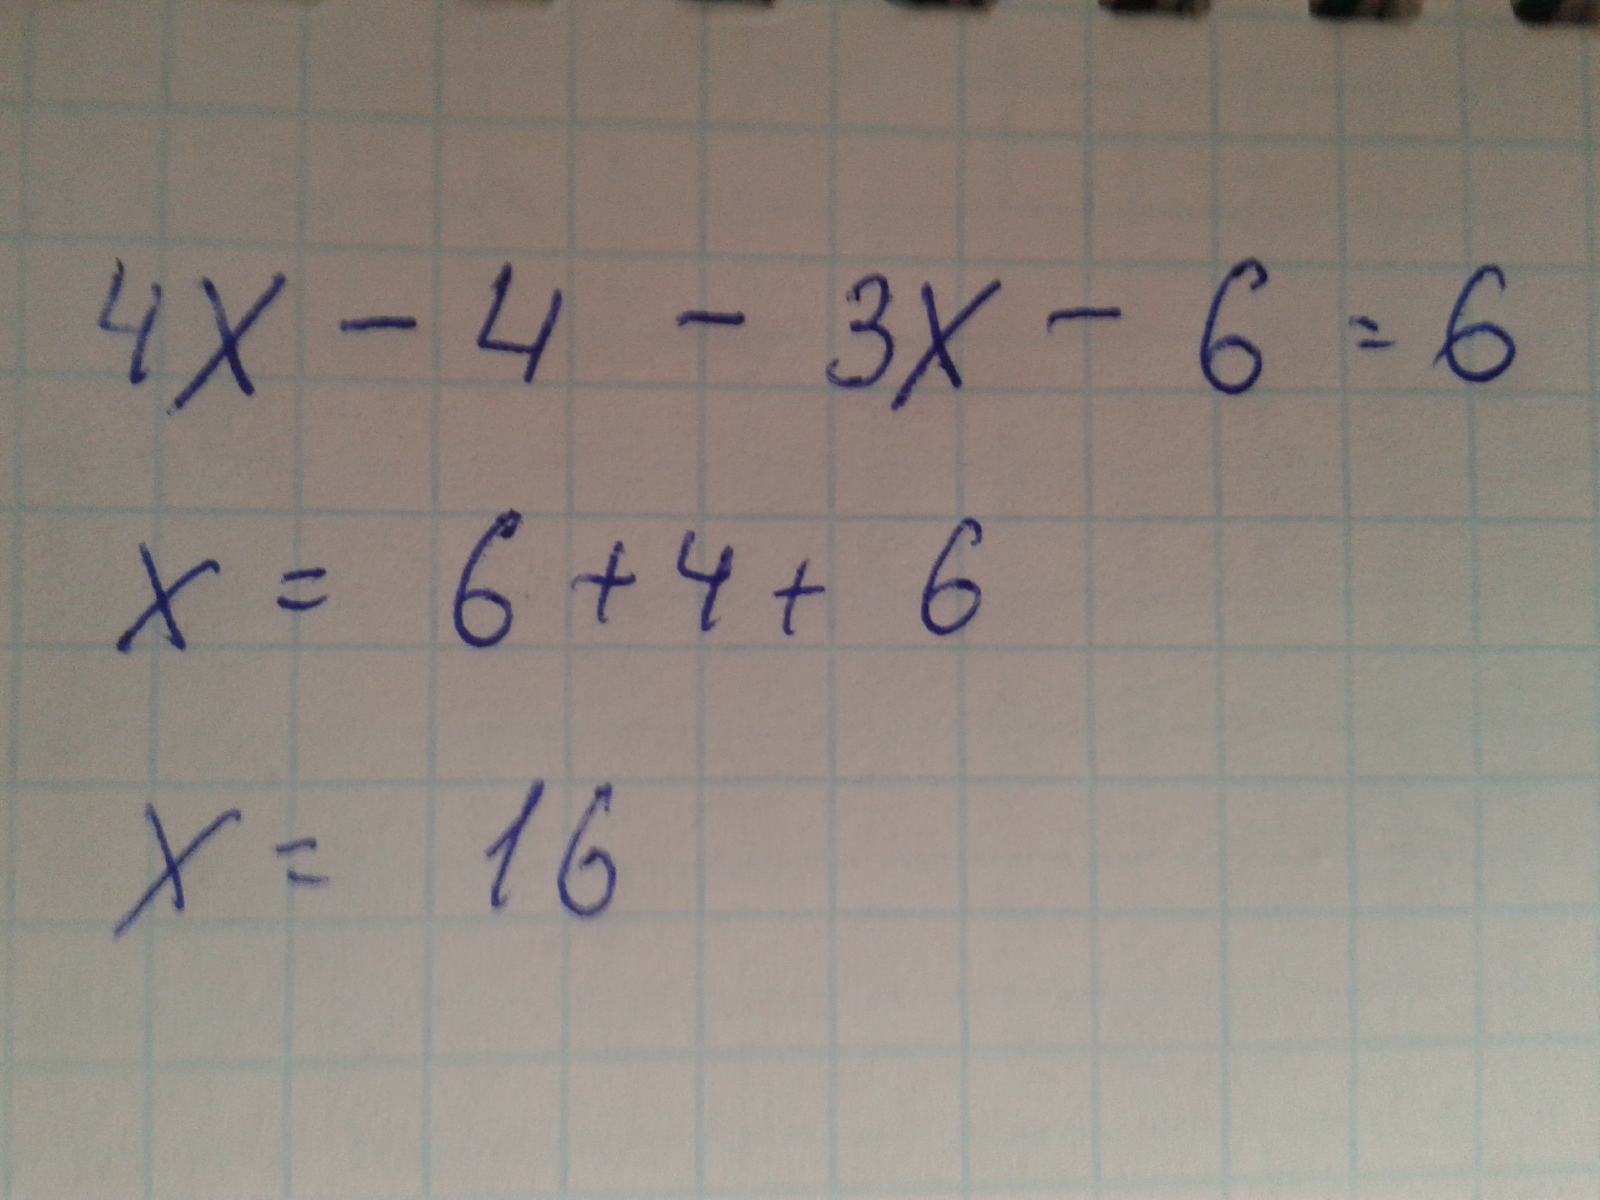 4x - 4 - 3x - 6 = 6
x = 6 + 4 + 6
x = 16